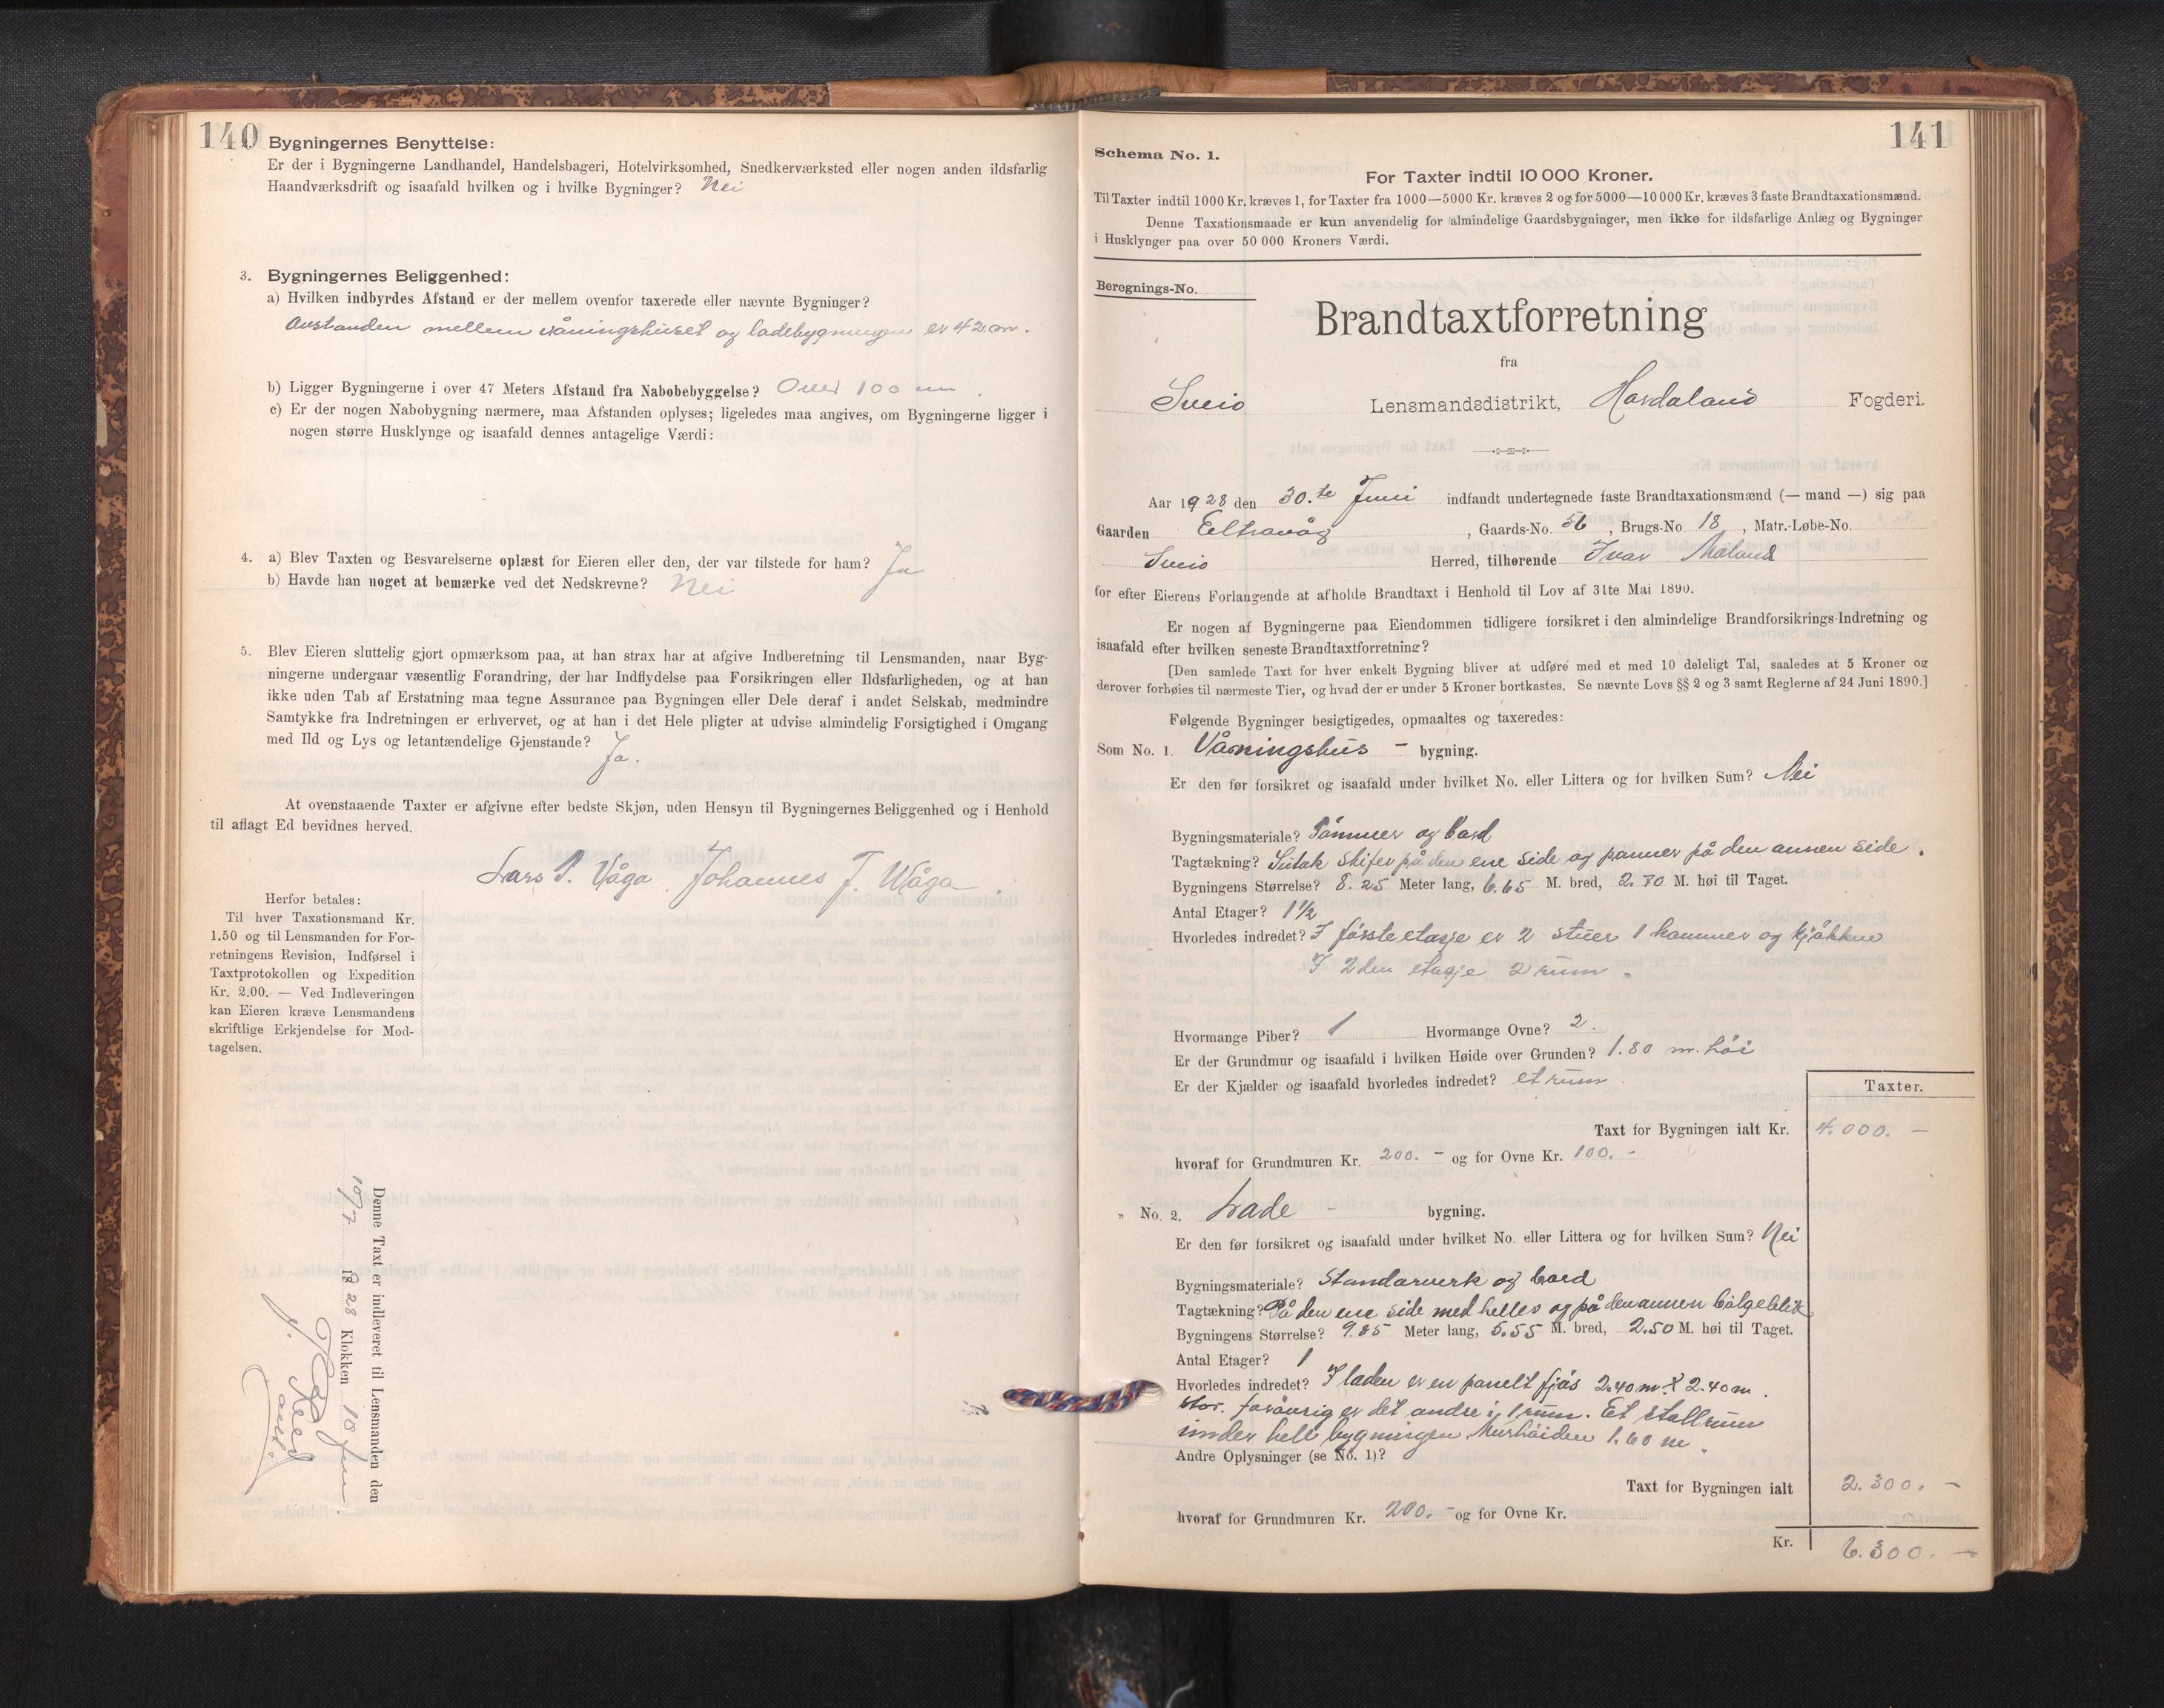 140
Bygningernes Benyttelse:
Er der i Bygningerne Landhandel, Handelsbageri, Hotelvirksomhed, Snedkerværksted eller nogen anden ildsfarlig
Haandværksdrift og isaafald hvilken og i hvilke Bygninger? Nei
3. Bygningernes Beliggenhed:
a) Hvilken indbyrdes Afstand er der mellem ovenfor taxerede eller nævnte Bygninger?
Avstanden mellem våningshuset og ladebygningen er 42 m.
b) Ligger Bygningerne i over 47 Meters Afstand fra Nabobebyggelse? Over 100 m
c) Er der nogen Nabobygning nærmere, maa Afstanden oplyses; ligeledes maa angives, om Bygningerne ligger i
nogen større Husklynge og isaafald dennes antagelige Værdi:
4. a) Blev Taxten og Besvarelserne oplæst for Eieren eller den, der var tilstede for ham? Ja
b) Havde han noget at bemærke ved det Nedskrevne? Nei
5. Blev Eieren sluttelig gjort opmærksom paa, at han strax har at afgive Indberetning til Lensmanden, naar Byg-
ningerne undergaar væsentlig Forandring, der har Indflydelse paa Forsikringen eller Ildsfarligheden, og at han
ikke uden Tab af Erstatning maa tegne Assurance paa Bygningen eller Dele deraf i andet Selskab, medmindre
Samtykke fra Indretningen er erhvervet, og at han i det Hele pligter at udvise almindelig Forsigtighed i Omgang
med Ild og Lys og letantændelige Gjenstande? Ja.
At ovenstaaende Taxter er afgivne efter bedste Skjøn, uden Hensyn til Bygningernes Beliggenhed og i Henhold
til aflagt Ed bevidnes herved.
Lars P. Våga. Johannes J. Våga.
Herfor betales:
Til hver Taxationsmand Kr.
1.50 og til Lensmanden for For-
retningens Revision, Indførsel i
Taxtprotokollen og Expedition
Kr. 2.00. — Ved Indleveringen
kan Eieren kræve Lensmandens
skriftlige Erkjendelse for Mod-
tagelsen.
Denne Taxt er indleveret til Lensmanden den
10/7 1928 Klokken 10 fm.
141
Schema No. 1.
For Taxter indtil 10 000 Kroner.
Til Taxter indtil 1000 Kr. kræves 1, for Taxter fra 1000—5000 Kr. kræves 2 og for 5000—10 000 Kr. kræves 3 faste Brandtaxationsmænd.
Denne Taxationsmaade er kun anvendelig for almindelige Gaardsbygninger, men ikke for ildsfarlige Anlæg og Bygninger
i Husklynger paa over 50 000 Kroners Værdi.
Beregnings-No.
Brandtaxtforretning
fra
Sveio Lensmandsdistrikt, Hordaland Fogderi.
Aar 1928 den 30.te Juni indfandt undertegnede faste Brandtaxationsmænd (— mand —) sig paa
Gaarden Eltravåg, Gaards-No. 56, Brugs-No. 18, Matr.-Løbe-No.
Sveio Herred, tilhørende Ivar Mæland
for efter Eierens Forlangende at afholde Brandtaxt i Henhold til Lov af 31te Mai 1890.
Er nogen af Bygningerne paa Eiendommen tidligere forsikret i den almindelige Brandforsikrings-Indretning og
isaafald efter hvilken seneste Brandtaxtforretning?
[Den samlede Taxt for hver enkelt Bygning bliver at udføre med et med 10 deleligt Tal, saaledes at 5 Kroner og
derover forhøies til nærmeste Tier, og hvad der er under 5 Kroner bortkastes. Se nævnte Lovs §§ 2 og 3 samt Reglerne af 24 Juni 1890.]
Følgende Bygninger besigtigedes, opmaaltes og taxeredes:
Som No. 1. Våningshus - bygning.
Er den før forsikret og isaafald under hvilket No. eller Littera og for hvilken Sum? Nei
Bygningsmateriale? Tømmer og bord
Tagtækning? Sutak skifer på den ene side og panner på den annen side.
Bygningens Størrelse? 8.25 Meter lang, 6.65 M. bred, 2.70 M. høi til Taget.
Antal Etager? 1½
Hvorledes indredet? I første etasje er 2 stuer 1 kammer og kjøkken
I 2den etasje 2 rum.
Hvormange Piber? 1 Hvormange Ovne? 2.
Er der Grundmur og isaafald i hvilken Høide over Grunden? 1.80 m. høi
Er der Kjælder og isaafald hvorledes indredet? et rum
Taxter.
Taxt for Bygningen ialt Kr. 4.000. -
hvoraf for Grundmuren Kr. 200. - og for Ovne Kr. 100. -
„ No. 2. Lade - bygning.
Er den før forsikret og isaafald under hvilket No. eller Littera og for hvilken Sum? Nei
Bygningsmateriale? Standarverk og bord
Tagtækning? På den ene side med heller og på den annen bølgeblik
Bygningens Størrelse? 9.85 Meter lang, 5.55 M. bred, 2.50 M. høi til Taget.
Antal Etager? 1
Hvorledes indredet? I laden er en panelt fjøs 2.40 m. X 2.40 m.
stor. forøvrig er det andre i 1 rum. Et stallrum
under hele bygningen Murhøiden 1.60 m.
Andre Oplysninger (se No. 1)?
Taxt for Bygningen ialt 2.300. -
hvoraf for Grundmuren Kr. 200. - og for Ovne Kr.
Kr. 6.300. -